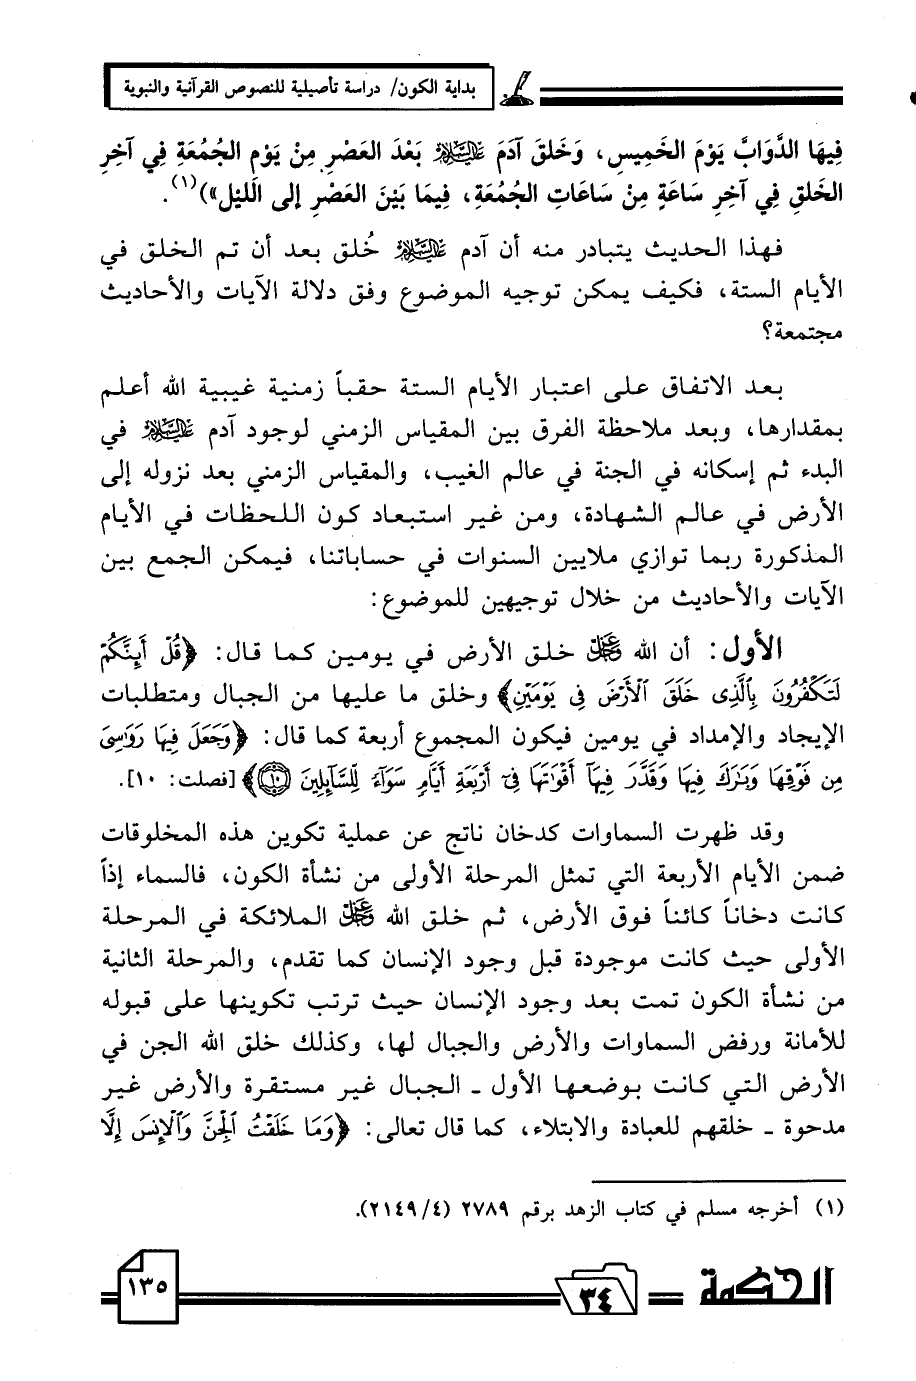 بداية الكون/ دراسة تأصيلية للنصوص القرآنية والنبوية
فِيهَا الدَّوَابَّ يَوْمَ الخَمِيسِ، وَخَلقَ آدَمَ عَلَيْهِ السَّلَام بَعْدَ العَصْرِ مِنْ يَوْمِ الجُمُعَةِ فِي آخِرِ
الخَلقِ فِي آخِرِ سَاعَةٍ مِنْ سَاعَاتِ الجُمُعَةِ، فِيمَا بَيْنَ العَصْرِ إلى الَليْل»)(١).
فهذا الحديث يتبادر منه أن آدم عَلَيْهِ السَّلَام خُلق بعد أن تم الخلق في
الأيام الستة، فكيف يمكن توجيه الموضوع وفق دلالة الآيات والأحاديث
مجتمعة؟
بعد الاتفاق على اعتبار الأيام الستة حقباً زمنية غيبية الله أعلم
بمقدارها، وبعد ملاحظة الفرق بين المقياس الزمني لوجود آدم عَلَيْهِ السَّلَام في
البدء ثم إسكانه في الجنة في عالم الغيب، والمقياس الزمني بعد نزوله إلى
الأرض في عالم الشهادة، ومن غير استبعاد كون اللحظات في الأيام
المذكورة ربما توازي ملايين السنوات في حساباتنا، فيمكن الجمع بين
الآيات والأحاديث من خلال توجيهين للموضوع:
الأول: أن الله عَزَّ وَجَلَّ خلق الأرض في يومين كما قال: ﴿قُلْ أَئِنَّكُمْ
لَتَكْفُرُونَ بِٱلَّذِى خَلَقَ ٱلْأَرْضَ فِى يَوْمَيْنِ﴾ وخلق ما عليها من الجبال ومتطلبات
الإيجاد والإمداد في يومين فيكون المجموع أربعة كما قال: ﴿وَجَعَلَ فِيهَا رَوَٰسِىَ
مِن فَوْقِهَا وَبَٰرَكَ فِيهَا وَقَدَّرَ فِيهَآ أَقْوَٰتَهَا فِىٓ أَرْبَعَةِ أَيَّامٍ سَوَآءً لِّلسَّآئِلِينَ ١٠﴾ [فصلت: ١٠].
وقد ظهرت السماوات كدخان ناتج عن عملية تكوين هذه المخلوقات
ضمن الأيام الأربعة التي تمثل المرحلة الأولى من نشأة الكون، فالسماء إذاً
كانت دخاناً كائناً فوق الأرض، ثم خلق الله عَزَّ وَجَلَّ الملائكة في المرحلة
الأولى حيث كانت موجودة قبل وجود الإنسان كما تقدم، والمرحلة الثانية
من نشأة الكون تمت بعد وجود الإنسان حيث ترتب تكوينها على قبوله
للأمانة ورفض السماوات والأرض والجبال لها، وكذلك خلق الله الجن في
الأرض التي كانت بوضعها الأول ـ الجبال غير مستقرة والأرض غير
مدحوة ـ خلقهم للعبادة والابتلاء، كما قال تعالى: ﴿وَمَا خَلَقْتُ ٱلْجِنَّ وَٱلْإِنسَ إِلَّا
(١) أخرجه مسلم في كتاب الزهد برقم ٢٧٨٩ (٢١٤٩/٤).
الحكمة ٣٤ ١٣٥